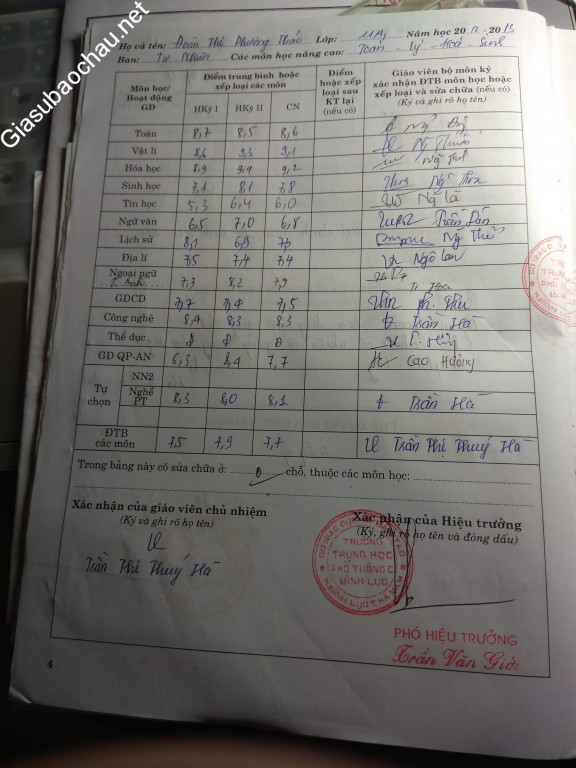 Giasubaochau.net
Họ và tên: Đoàn Thị Phương Thảo Lớp: 11A1 Năm học 2012-2013
Ban: Tự Nhiên Các môn học nâng cao: Toán - Lý - Hóa - Sinh
Môn học/ Hoạt động GD
Điểm trung bình hoặc xếp loại các môn
HKỳ I HKỳ II CN
Điểm hoặc xếp loại sau KT lại (nếu có)
Giáo viên bộ môn ký xác nhận ĐTB môn học hoặc xếp loại và sửa chữa (nếu có)
(Ký và ghi rõ họ tên)
Toán 8,7 8,5 8,6
Vật lí 8,6 9,3 9,1
Hóa học 8,9 9,4 9,2
Sinh học 7,1 8,1 7,8
Tin học 5,3 6,4 6,0
Ngữ văn 6,5 7,0 6,8
Lịch sử 8,1 6,9 7,3
Địa lí 7,5 7,4 7,4 Ngô Lan
Ngoại ngữ T. Anh 7,3 8,2 7,9
GDCD 7,7 7,4 7,5
Công nghệ 8,4 8,3 8,3 Trần Hà
Thể dục Đ Đ Đ
GD QP-AN 6,3 8,4 7,7 Cao Hường
Tự chọn
NN2
Nghề PT 8,3 8,0 8,1 Trần Hà
ĐTB các môn 7,5 7,9 7,7 Trần Thị Thuý Hà
Trong bảng này có sửa chữa ở: chỗ, thuộc các môn học:
Xác nhận của giáo viên chủ nhiệm
(Ký và ghi rõ họ tên)
Trần Thị Thuý Hà
Xác nhận của Hiệu trưởng
(Ký, ghi rõ họ tên và đóng dấu)
TRƯỜNG
TRUNG HỌC
PHỔ THÔNG C
BÌNH LỤC
PHÓ HIỆU TRƯỞNG
Trần Văn Giới
4